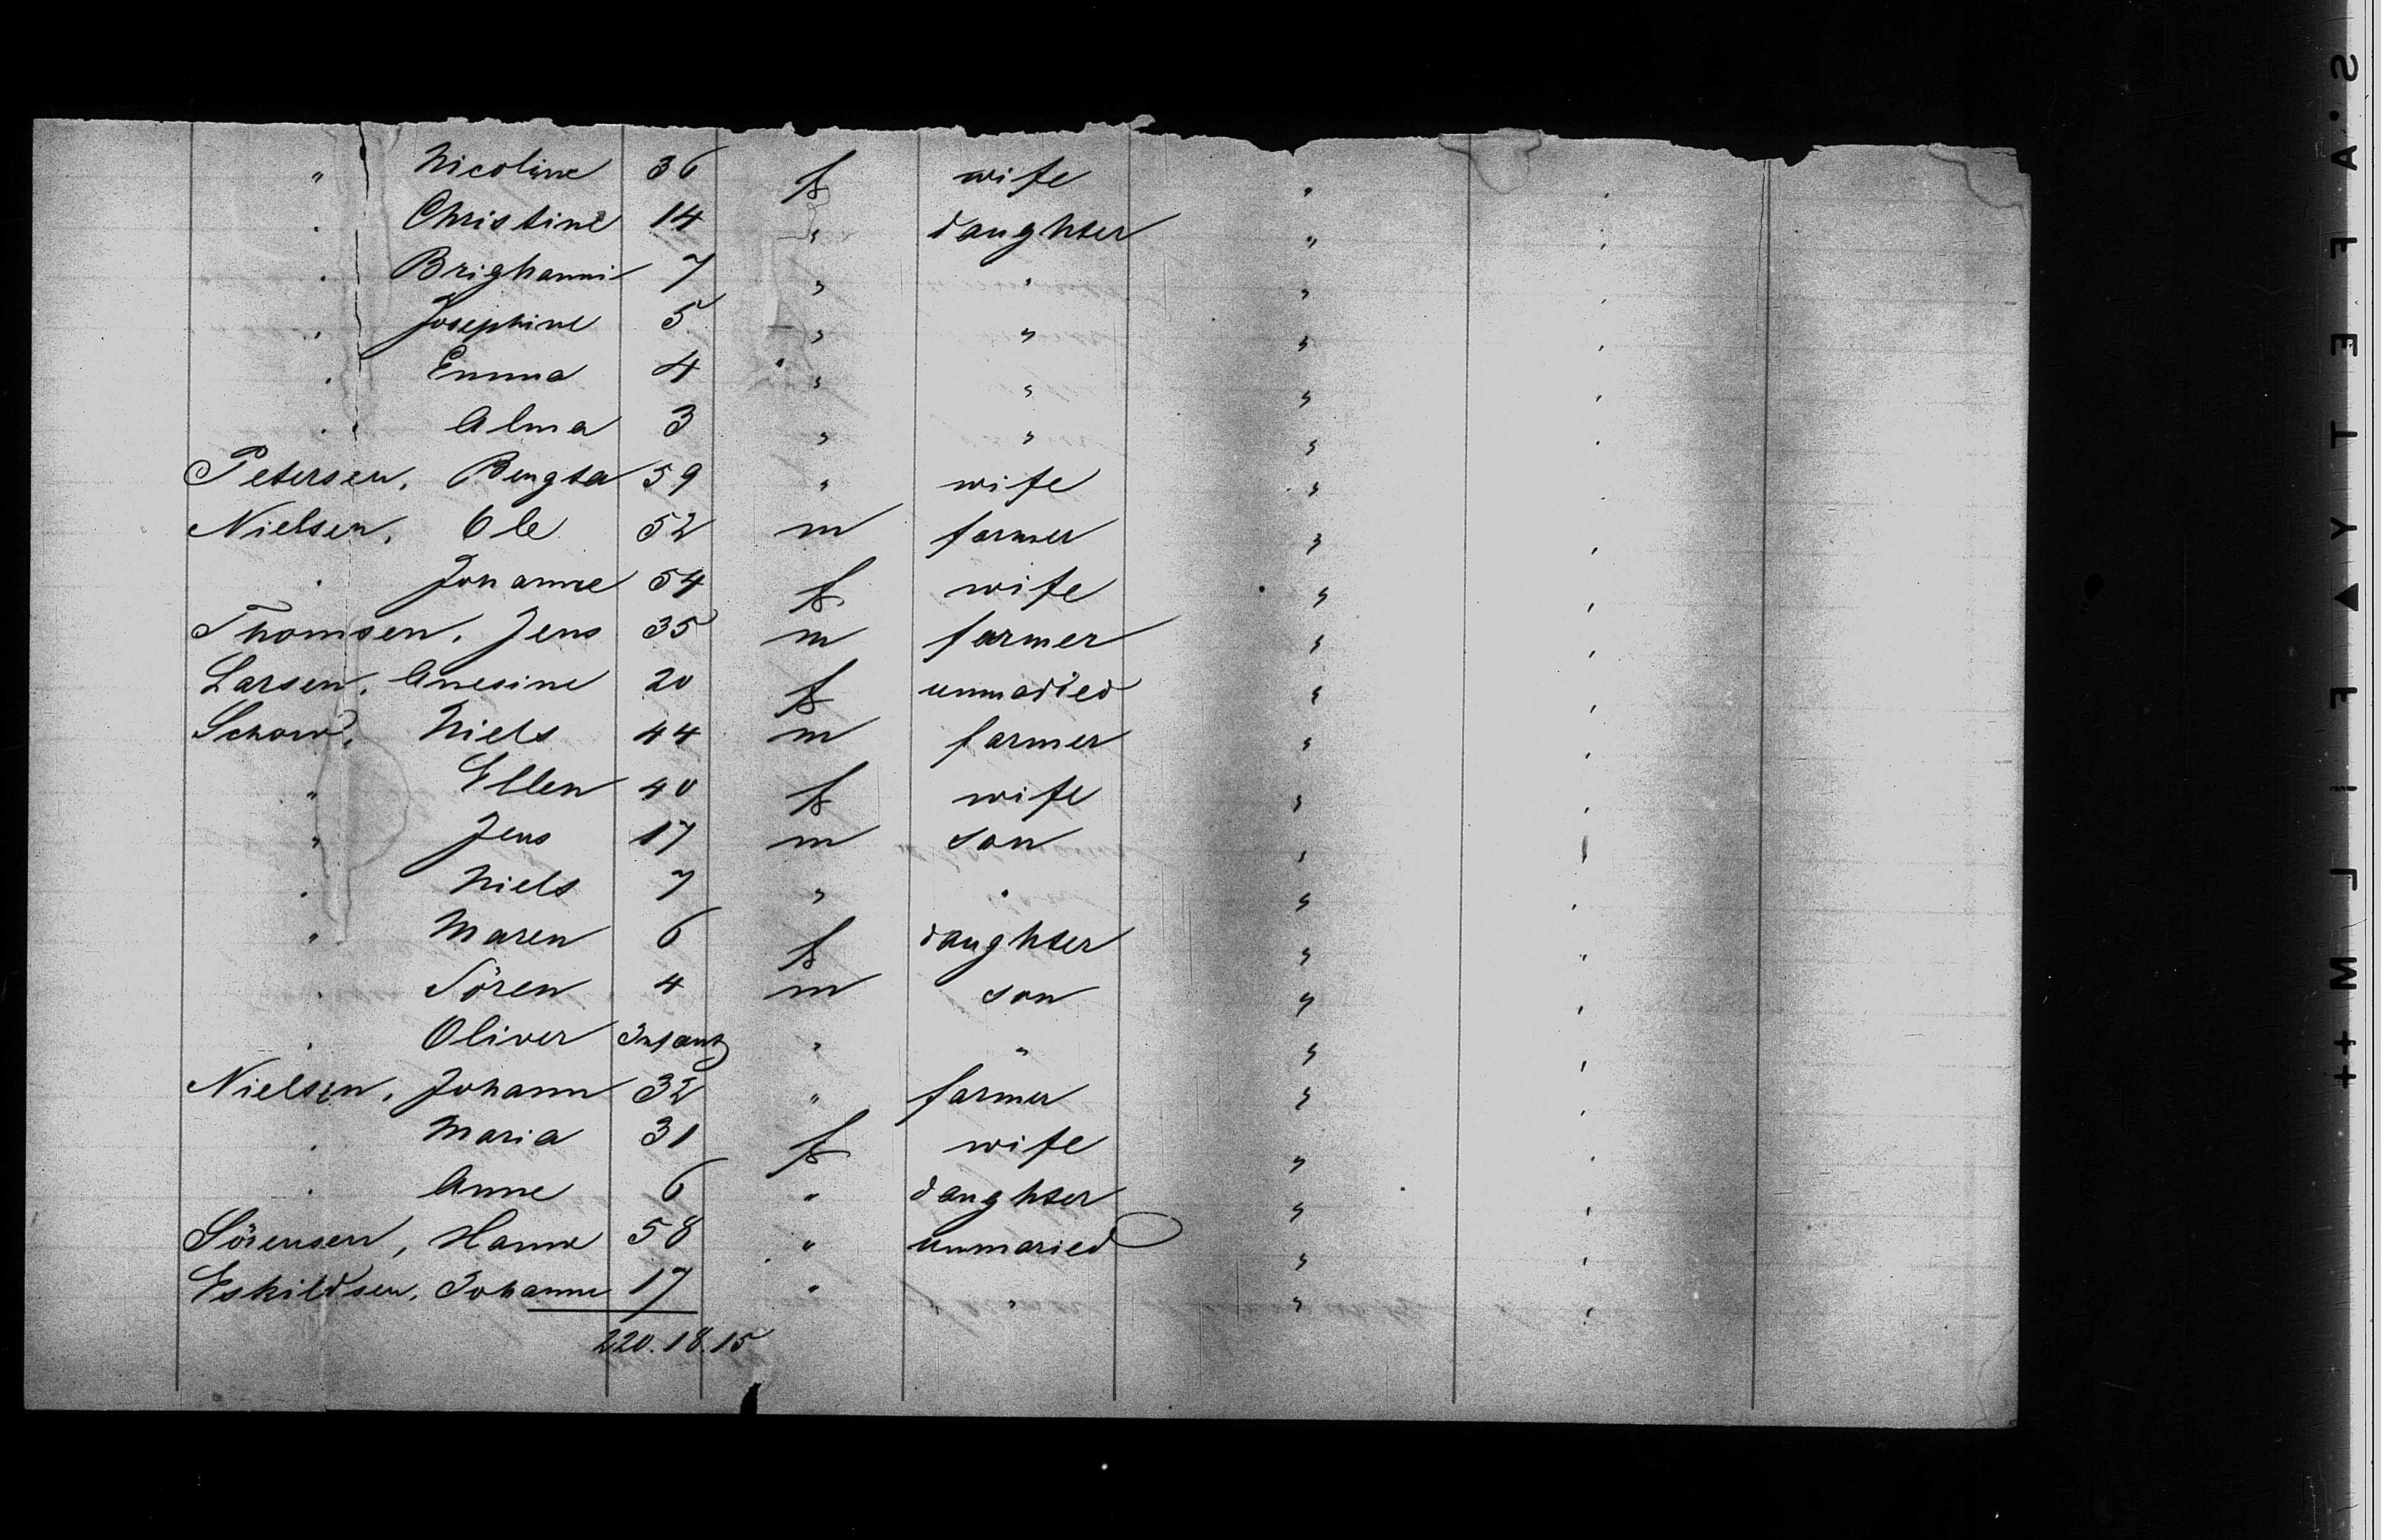 " Nicoline 36 f wife "
" Christine 14 " daughter " "
" Brighanni 7 " " " "
" Josephine 5 " " " "
" Emma 4 " " " "
" Alma 3 " " " "
Petersen, Bengta 59 " wife " "
Nielsen, Ole 52 m farmer " "
" Johanne 54 f wife " "
Thomsen, Jens 35 m farmer " "
Larsen, Anesine 20 f "
Schow, Niels 44 m farmer " "
" Ellen 40 f wife " "
" Jens 17 m son " "
" Niels 7 " " " "
" Maren 6 f daughter " "
" Sören 4 m son " "
" Oliver Infant " " " "
Nielsen, Johann 32 " farmer " "
" Maria 31 f wife " "
" Anne 6 " daughter " "
Sörensen, Hanne 58 " unmaried " "
Eskildsen, Johanne 17 " " " "
220.18.15
SAFETY ▲ FILM ++